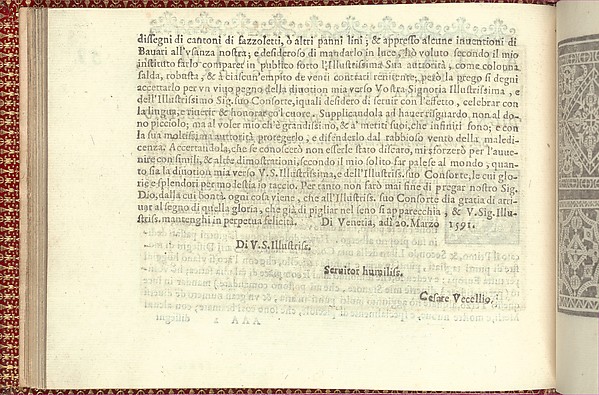 dissegni di cantoni di fazzoletti, ò altri panni lini; & appresso alcune inuentioni di
Bauari all'vsanza nostra; e desideroso di mandarlo in luce, hò voluto secondo il mio
instituto farlo comparer in publico sotto l'Illustrissima Sua auttorità, come colonna
salda, robusta, & à ciascun'empito de venti contrarij renitente; però la prego si degni
accettarlo per vn viuo pegno della diuotion mia verso Vostra Signoria Illustrissima, e
dell'Illustrissimo Sig. suo Consorte, iquali desidero di seruir con l'effetto, celebrar con
la lingua, e riuerir & honorar co'l cuore. Supplicandola ad hauer risguardo, non al do-
no picciolo; ma al voler mio ch'è grandissimo, & a' meriti suoi, che infiniti sono; e con
la sua moltissima auttorità proteggerlo, e difenderlo dal rabbioso vento della maledi-
cenza. Accertandola, che se conoscerò non esserle stato discaro, mi sforzerò per l'auue-
nire con simili, & altre dimostrationi, secondo il mio solito far palese al mondo, quan-
to sia la diuotion mia verso V.S. Illustrissima, e dell'Illustriss. suo Consorte, le cui glo-
rie e splendori per modestia io taccio. Per tanto non farò mai fine di pregar nostro Sig.
Dio, dalla cui bontà ogni cosa viene, che all'Illustriss. suo Consorte dia gratia di arri-
uar al segno di quella gloria, che già di pigliar nel seno si apparecchia, & V. Sig. Illu-
striss. mantenghi in perpetua felicità. Di Venetia, adì 20. Marzo 1591.
Di V. S. Illustriss.
Seruitor humiliss.
Cesare Vecellio.